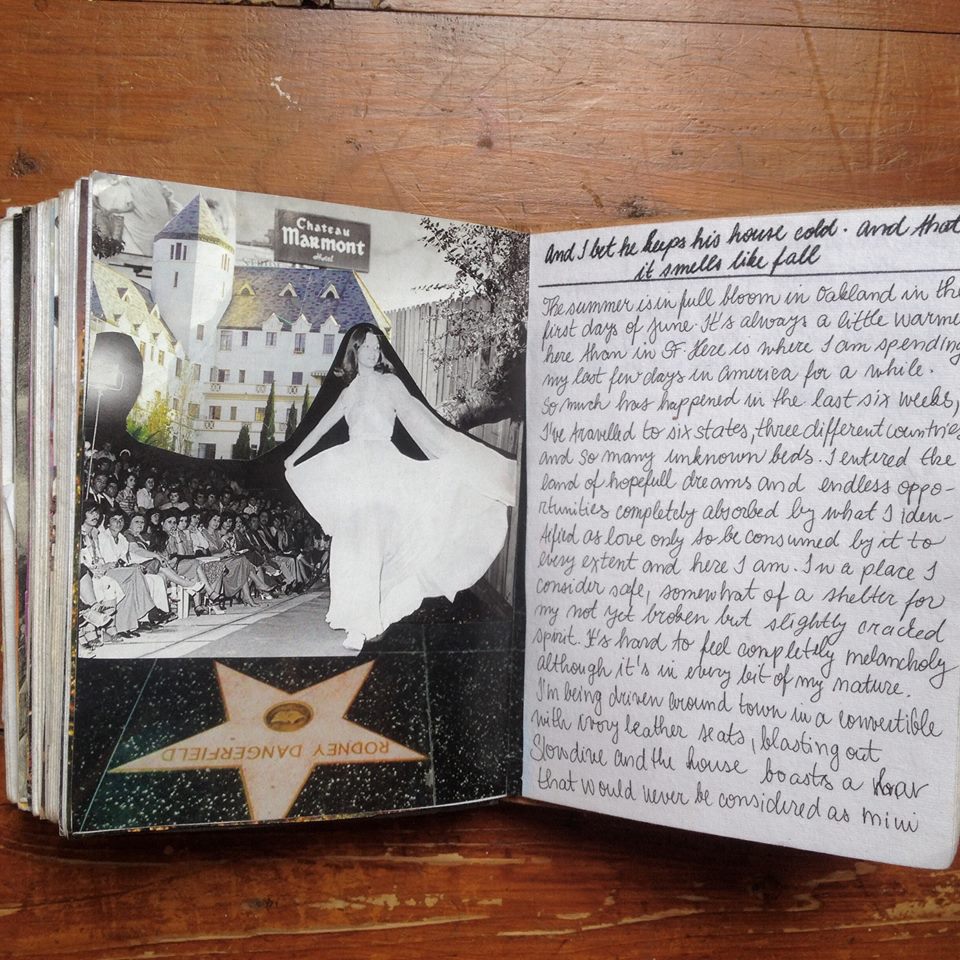 Chateau
Marmont
Hotel
RODNEY DANGERFIELD
And I bet he keeps his house cold. And that
it smells like fall
The summer is in full bloom in Oakland in the
first days of June. It's always a little warme
here than in SF. Here is where I am spending
my last few days in America for a while.
So much has happened in the last six weeks,
I've travelled to six states, three different countries
and so many unknown beds. I entered the
land of hopefull dreams and endless oppo-
rtunities completely absorbed by what I iden-
tified as love only so be consumed by it to
every extent and here I am. In a place I
consider safe, somewhat of a shelter for
my not yet broken but slightly cracked
spirit. It's hard to feel completely melancholy
although it's in every bit of my nature.
I'm being driven around town in a convertible
with ivory leather seats, blasting out
Slowdive and the house boasts a
that would never be considered as mini